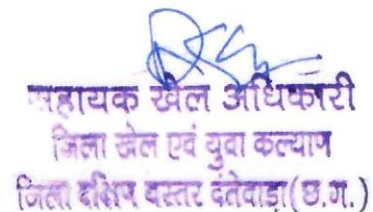 सहायक खेल अधिकारी
जिला खेल एवं युवा कल्याण
जिला दक्षिण बस्तर दंतेवाड़ा(छ.ग.)